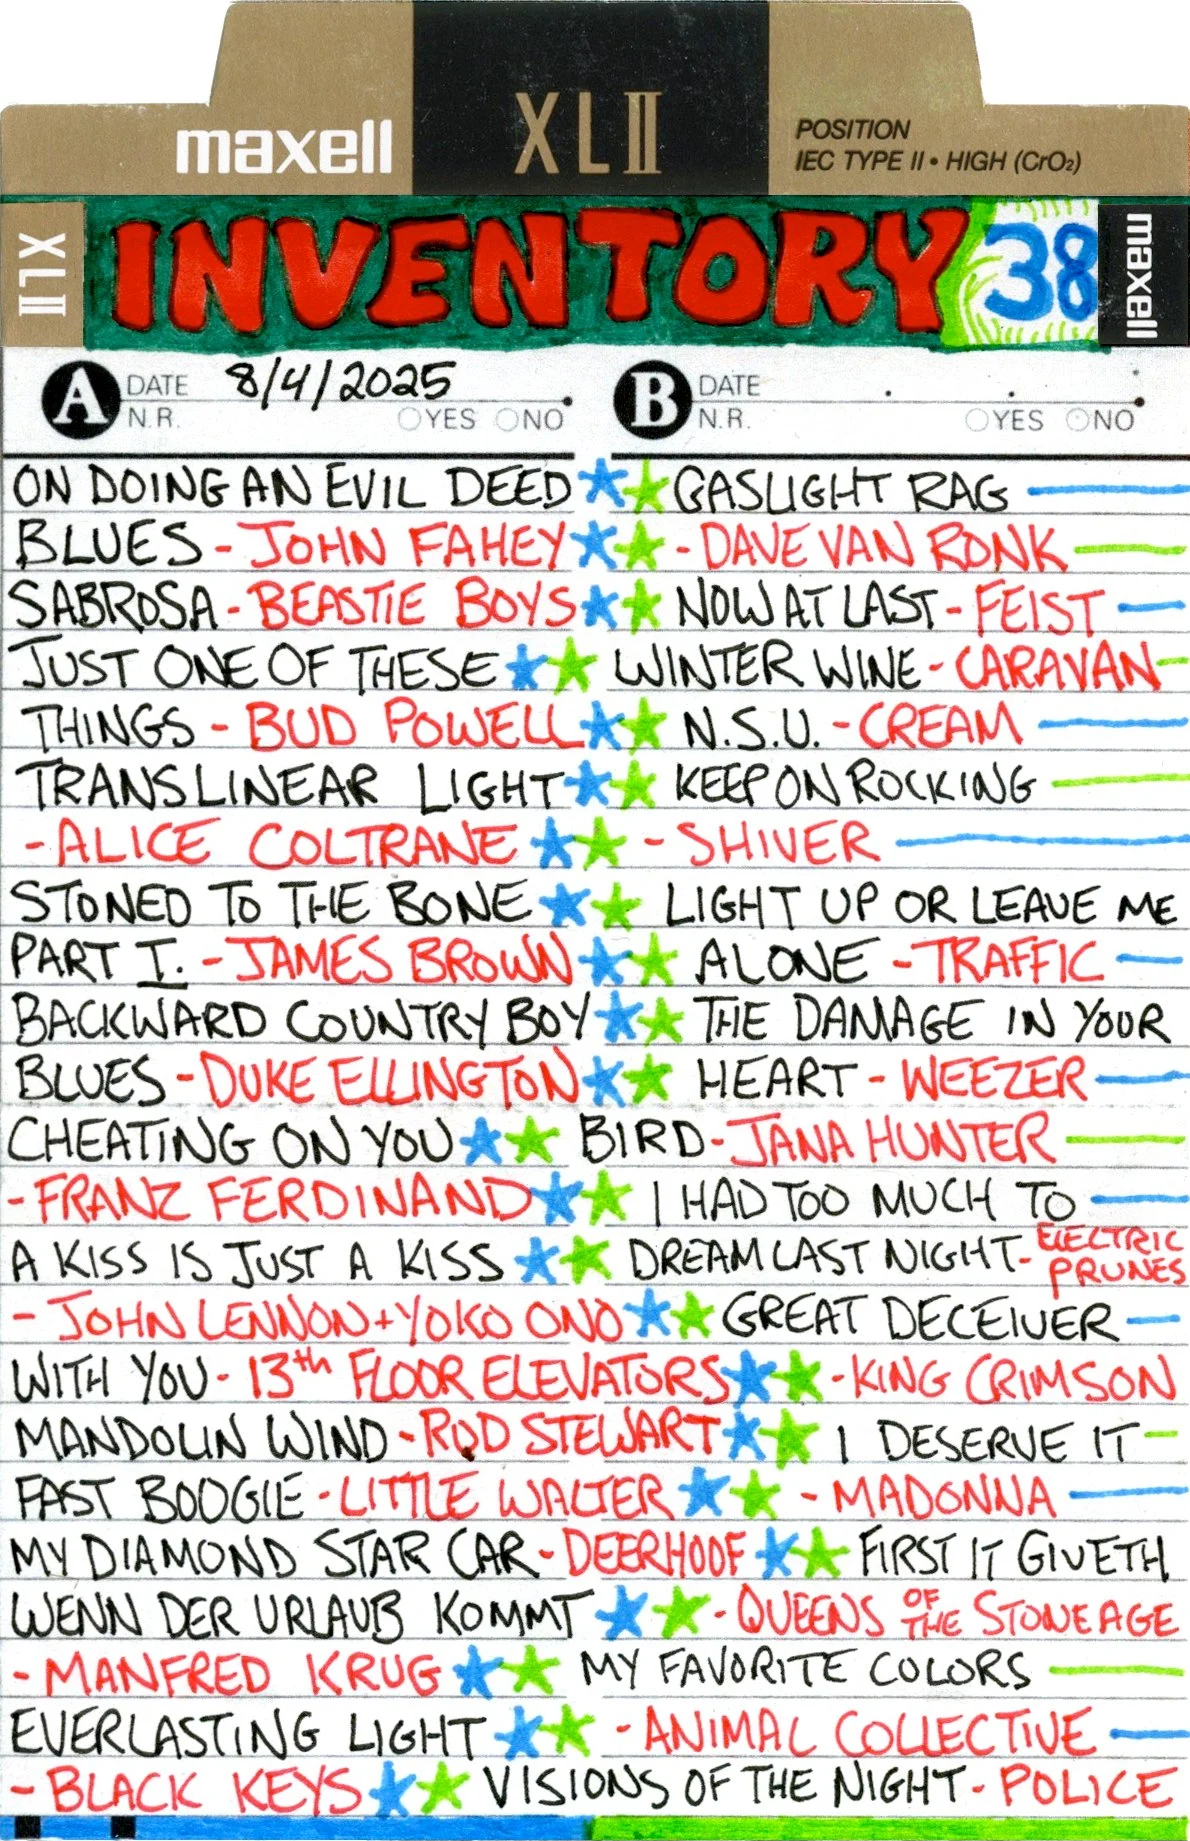 maxell XLII POSITION
IEC TYPE II • HIGH (CrO₂)
XLII INVENTORY 38 maxell
A DATE 8/4/2025
N.R. YES NO
ON DOING AN EVIL DEED
BLUES - JOHN FAHEY
SABROSA - BEASTIE BOYS
JUST ONE OF THESE
THINGS - BUD POWELL
TRANSLINEAR LIGHT
- ALICE COLTRANE
STONED TO THE BONE
PART I. - JAMES BROWN
BACKWARD COUNTRY BOY
BLUES - DUKE ELLINGTON
CHEATING ON YOU
- FRANZ FERDINAND
A KISS IS JUST A KISS
- JOHN LENNON + YOKO ONO
WITH YOU - 13th FLOOR ELEVATORS
MANDOLIN WIND - ROD STEWART
FAST BOOGIE - LITTLE WALTER
MY DIAMOND STAR CAR - DEERHOOF
WENN DER URLAUB KOMMT
- MANFRED KRUG
EVERLASTING LIGHT
- BLACK KEYS
B DATE
N.R. YES NO
GASLIGHT RAG
- DAVE VAN RONK
NOW AT LAST - FEIST
WINTER WINE - CARAVAN
N.S.U. - CREAM
KEEP ON ROCKING
- SHIVER
LIGHT UP OR LEAVE ME
ALONE - TRAFFIC
THE DAMAGE IN YOUR
HEART - WEEZER
BIRD - JANA HUNTER
I HAD TOO MUCH TO
DREAM LAST NIGHT - ELECTRIC PRUNES
GREAT DECEIVER
- KING CRIMSON
I DESERVE IT
- MADONNA
FIRST IT GIVETH
- QUEENS OF THE STONE AGE
MY FAVORITE COLORS
- ANIMAL COLLECTIVE
VISIONS OF THE NIGHT - POLICE